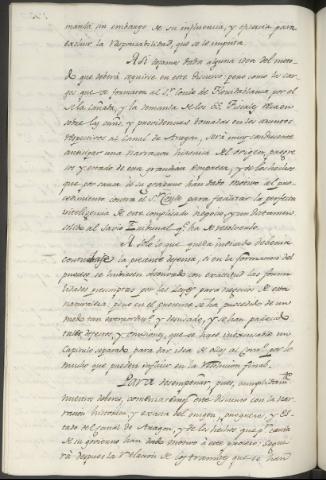 manda sin embargo de su influencia, y eficacia para
excluir la responsabilidad, que se le imputa.
A si dejamos dada alguna idea del meto-
do que deberá seguirse en este discurso; pero como los car-
gos que se formaron al S.r Conde de Floridablanca por el
y la demanda de los SS. Fiscales traen
sobre las miras, y providencias tomadas en los asuntos
respectivos al Canal de Aragon, será muy conveniente
anticipar una narracion historica del origen, progre-
sos y estado de esta grandiosa empresa, y de los hechos
que por causa de su gobierno han dado motivo al pro-
cedimiento contra el S.r Conde para facilitar la perfecta
inteligencia de este complicado negocio, y un
solido al Sabio Tribunal q.e ha de resolverlo.
A solo lo que queda indicado deberia
contraherse la presente defensa, si en la formacion del
proceso se hubiesen observado con exactitud las forma-
lidades prescriptas por las Leyes para negocios de esta
naturaleza; pero en el presente se ha procedido de un
modo tan extraordin.o y desusado, y se han padecido
tales defectos, y omisiones, que se hace indispensable un
Capitulo separado para dar idea de ellos al Consejo por lo
mucho que pueden influir en la resolucion final.
Para desempeñar, pues, cumplidam.te
nuestro deber, comenzaremos este discurso con la nar-
racion historica, y exacta del origen, progresos, y es-
tado del Canal de Aragon, y de los hechos que p.r causa
de su gobierno han dado motivo à este proceso: Segui-
rá despues la relacion de los tramites que se han